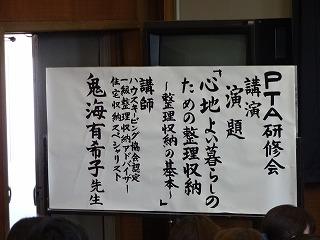 PTA研修会
講演
演題
「心地よい暮らしの
ための整理収納
～整理収納の基本～」
講師
ハウスキーピング協会認定
一級整理収納アドバイザー
住宅収納スペシャリスト
鬼海有希子先生